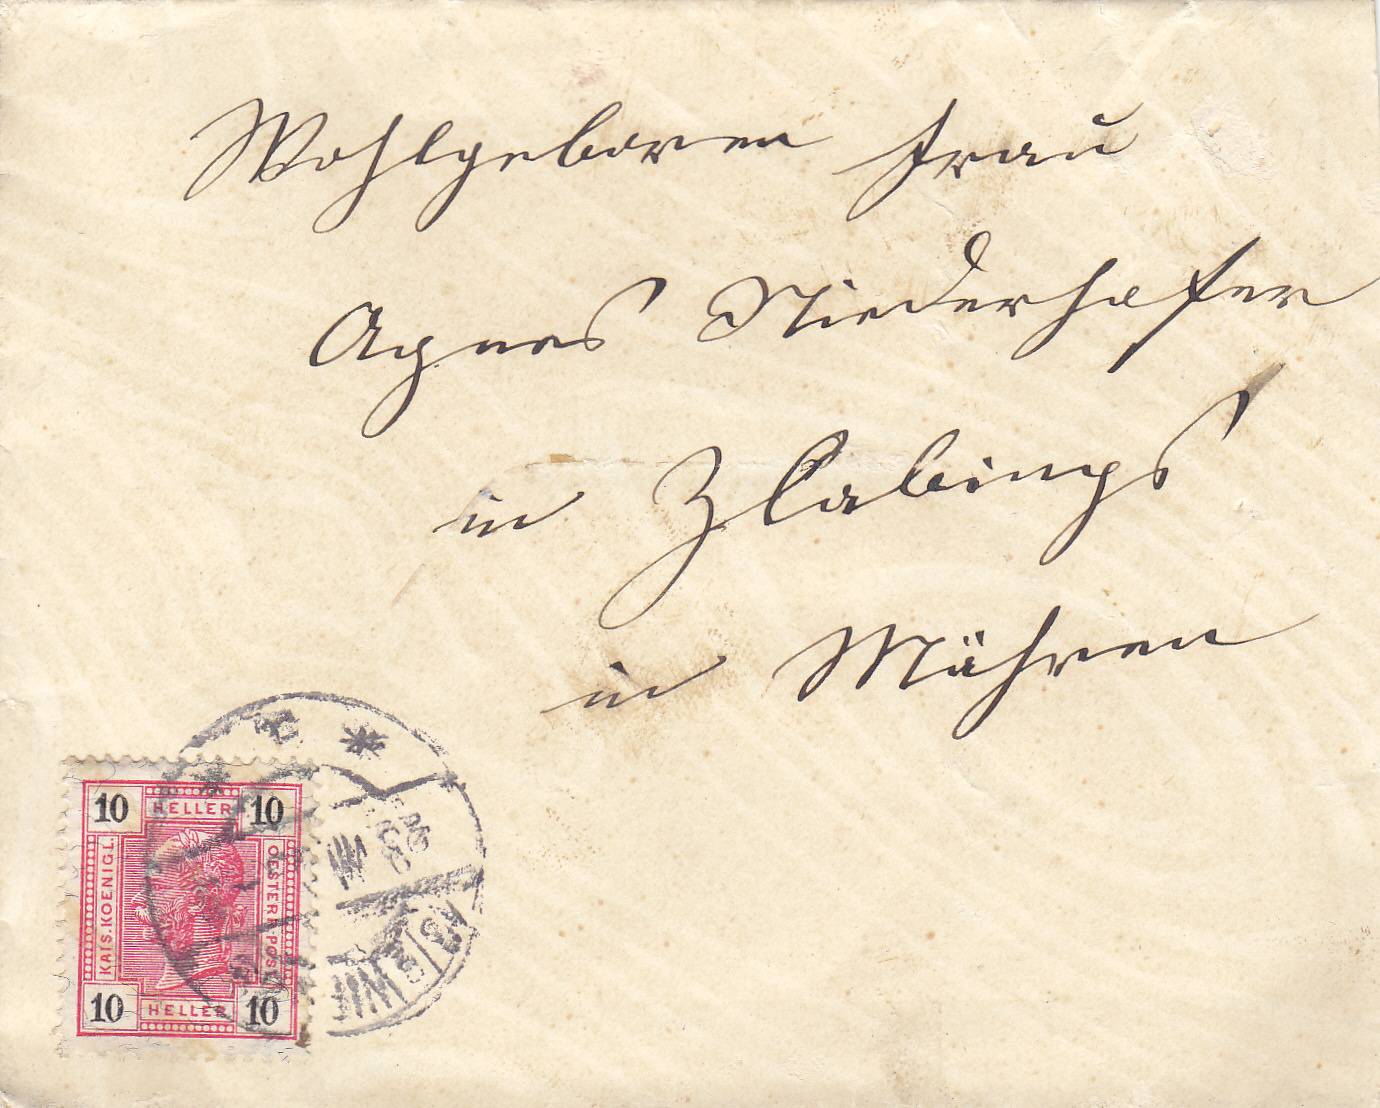 Wohlgeboren Frau
Agnes Niederhofer
in Zlabings
in Mähren
10 HELLER 10
KAIS. KOENIGL.
OESTERR. POST
10 HELLER 10